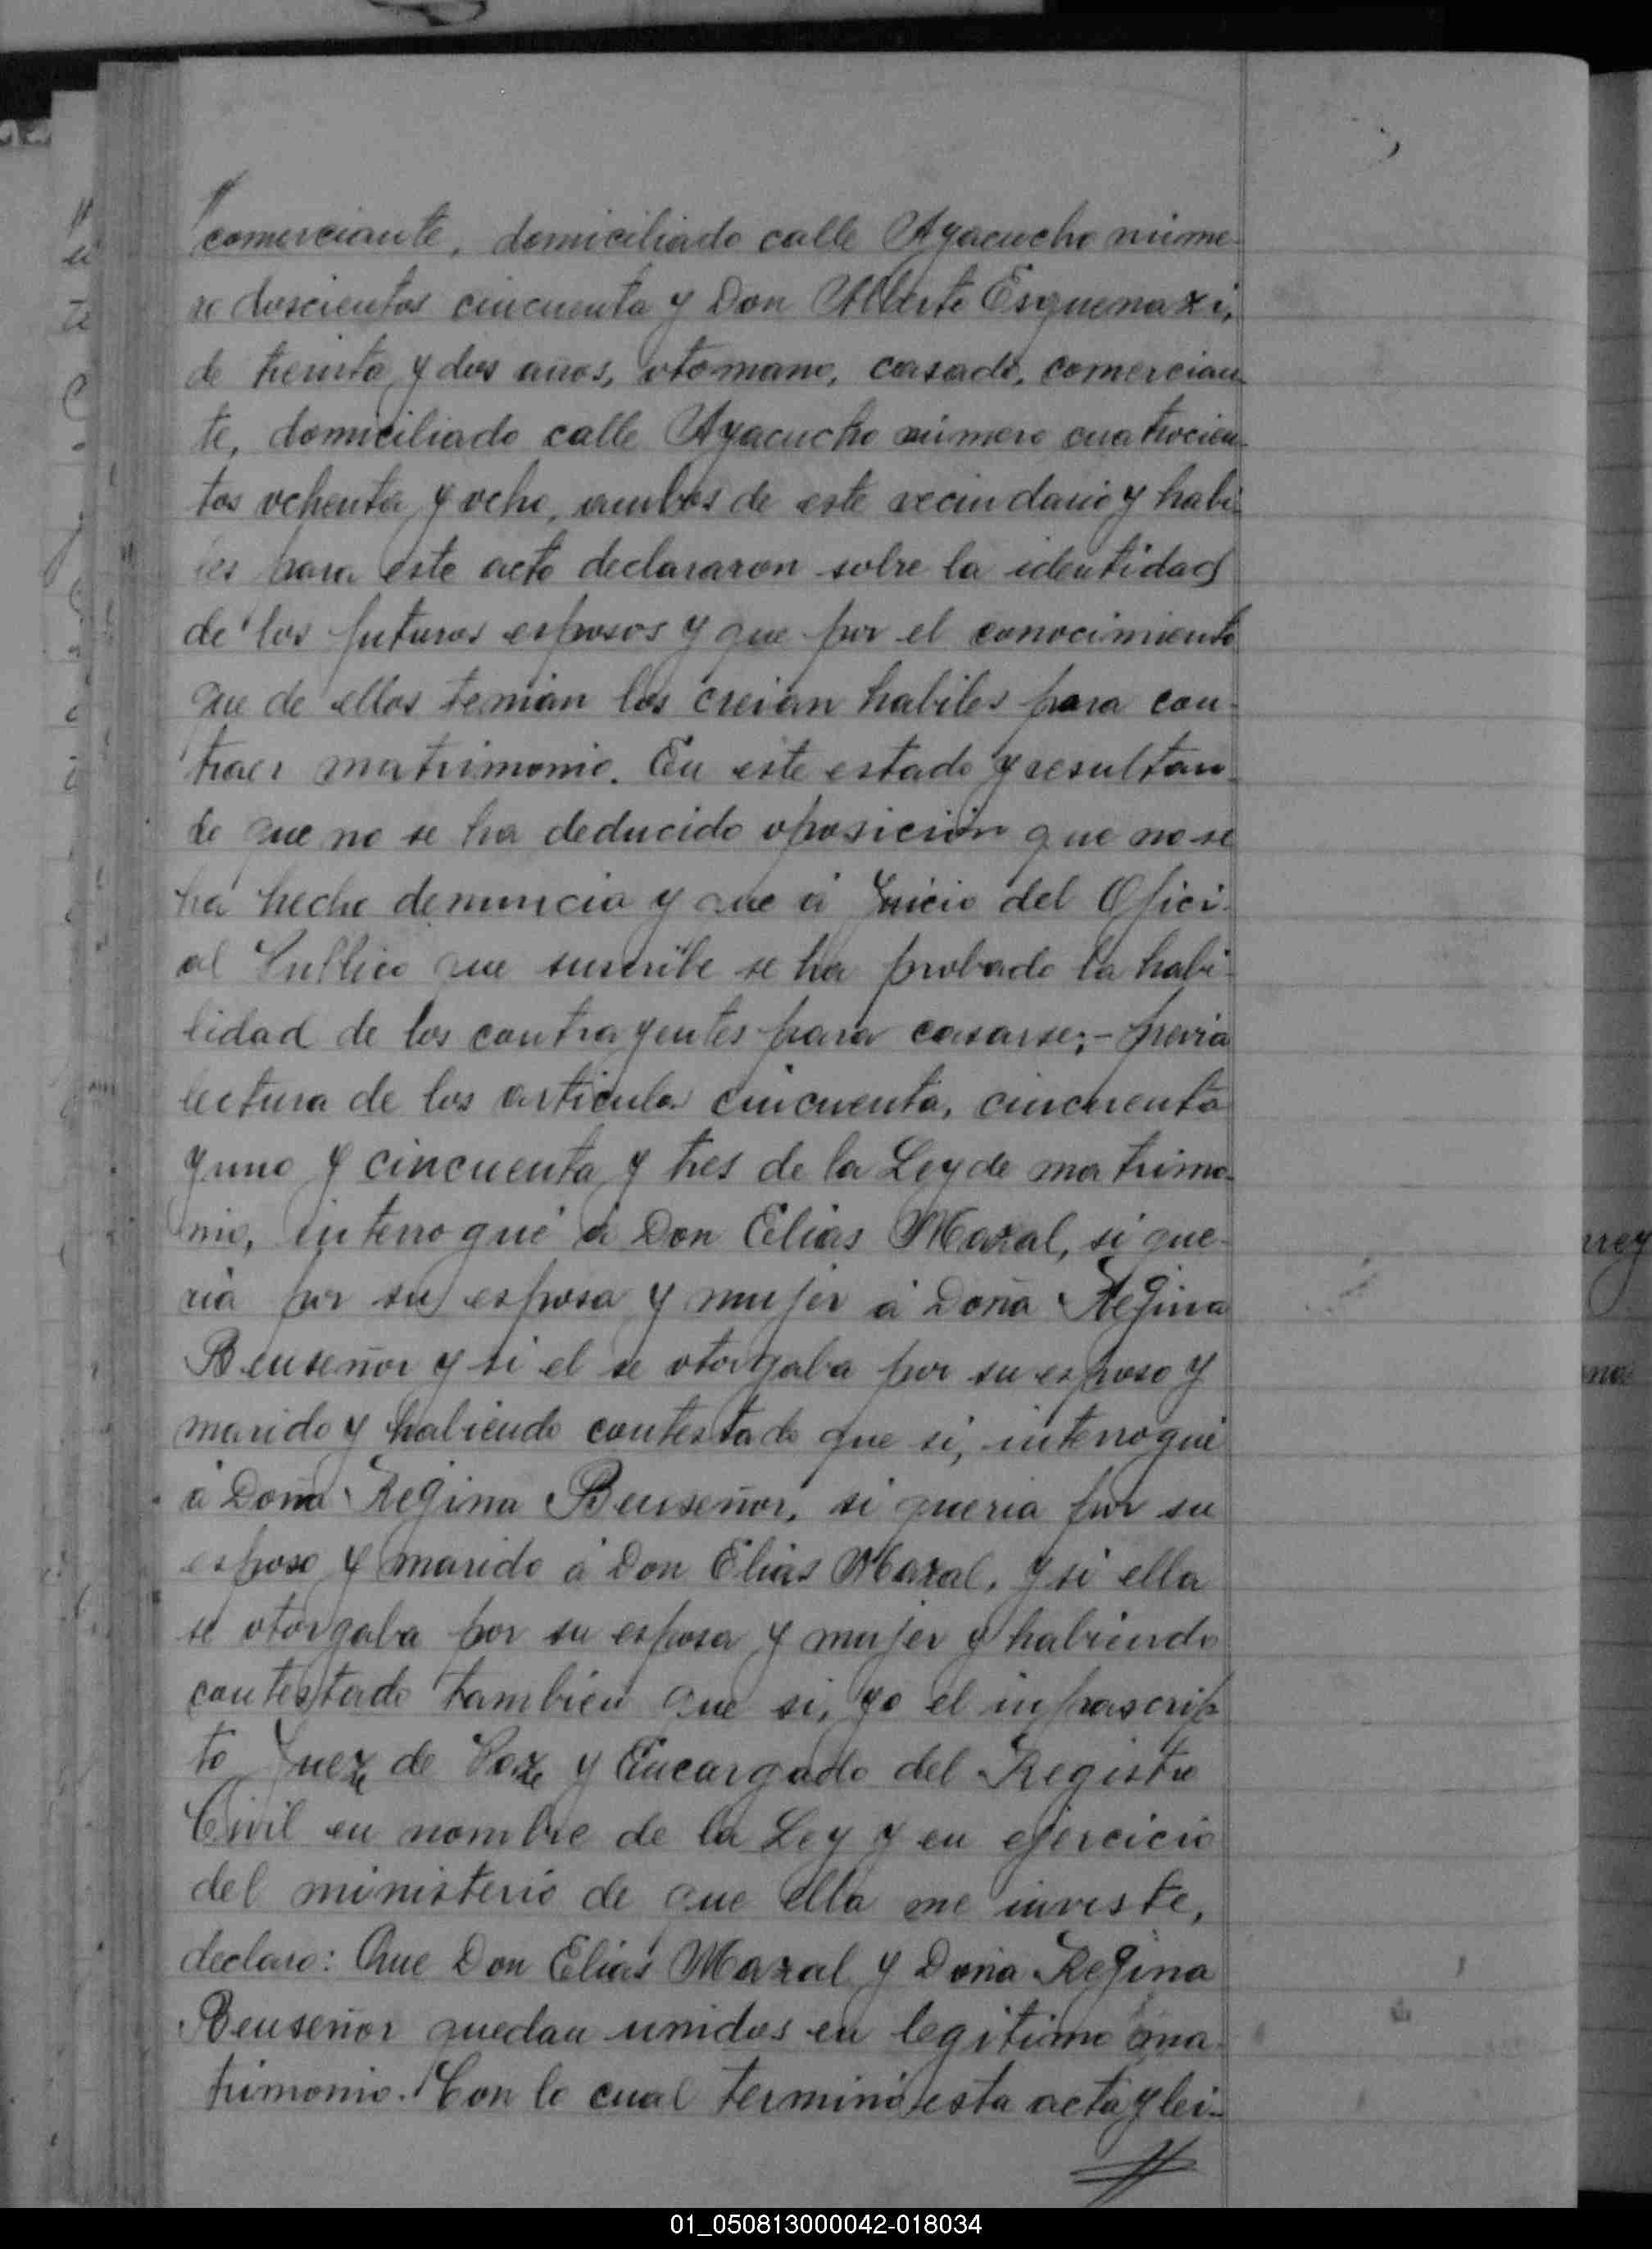 comerciante, domiciliado calle Ayacucho núme-
ro doscientos cincuenta y Don Alberto Esquenazi,
de treinta y dos años, otomano, casado, comercian-
te, domiciliado calle Ayacucho número cuatrocien-
tos ochenta y ocho, ambos de este vecindario y habi-
les para este acto declararon sobre la identidad
de los futuros esposos y que por el conocimiento
que de ellos tenian los creian habiles para con-
traer matrimonio. En este estado y resultan-
do que no se ha deducido oposición que no se
ha hecho denuncia y que á Juicio del Ofici-
al Publico que suscribe se ha probado la habi-
lidad de los contrayentes para casarse;- previa
lectura de los articulos cincuenta, cincuenta
y uno y cincuenta y tres de la Ley de matrimo-
nio, interrogué á Don Elias Mazal, si que-
ria por su esposa y mujer á Doña Regina
Benseñor y si el se otorgaba por su esposo y
marido y habiendo contestado que si, interrogué
á Doña Regina Benseñor, si queria por su
esposo y marido á Don Elias Mazal, y si ella
se otorgaba por su esposa y mujer y habiendo
contestado tambien que si, yo el infrascrip
to Juez de Paz y Encargado del Registro
Civil en nombre de la Ley y en ejercicio
del ministerio de que ella me inviste,
declaro: Que Don Elias Mazal y Doña Regina
Benseñor quedan unidos en legitimo ma-
trimonio. Con lo cual terminó esta acta y lei-
01_050813000042-018034